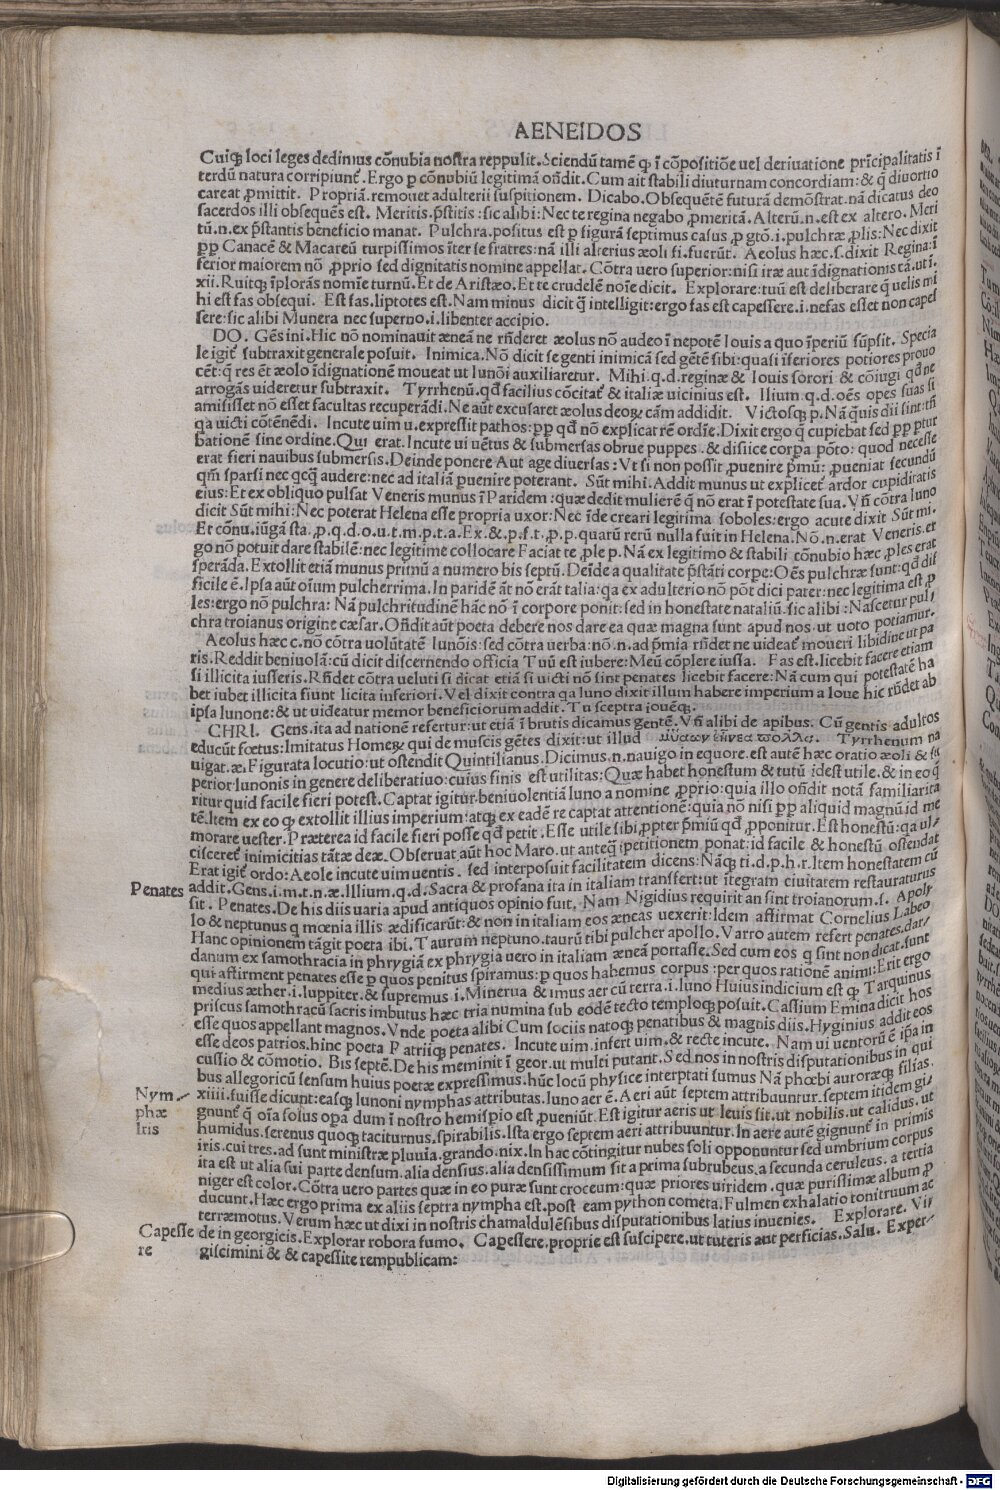 AENEIDOS
Cuiqꝫ loci leges dedimus cōnubia nostra reppulit. Sciendū tamē ꝙ ī cōpositiōe uel deriuatione prīcipalitatis ī
terdū natura corripiunt̃. Ergo p cōnubiū legitimā oñdit. Cum ait stabili diuturnam concordiam: & q̄ diuortio
careat ꝓmittit. Propriā. remouet adulterii suspitionem. Dicabo. Obsequētē futurā demōstrat. nā dicatus deo
sacerdos illi obsequēs est. Meritis. p̄stitis: sic alibi: Nec te regina negabo ꝓmeritā. Alterū. n. est ex altero. Meri
tū. n. ex p̄stantis beneficio manat. Pulchra. positus est p figurā septimus casus, ꝓ gtō. i. pulchræ ꝓlis: Nec dixit
ꝓp Canacē & Macareū turpissimos īter se fratres: nā illi alterius æoli fi. fuerūt. Aeolus hæc. s. dixit Regina: ī
ferior maiorem nō ꝓprio sed dignitatis nomine appellat. Cōtra uero superior: nisi iræ aut īdignationis cā. ut ī.
xii. Ruitqꝫ īplorās nomīe turnū. Et de Aristæo. Et te crudelē noīe dicit. Explorare: tuū est deliberare q̄ uelis mi
hi est fas obsequi. Est fas. liptotes est. Nam minus dicit q̄ intelligit: ergo fas est capessere. i. nefas esset non capes
sere: sic alibi Munera nec superno. i. libenter accipio.
DO. Gēs ini. Hic nō nominauit æneā ne rñderet æolus nō audeo ī nepotē Iouis a quo īperiū sūpsit. Specia
le igit̃ subtraxit generale posuit. Inimica. Nō dicit se genti inimicā sed gētē sibi: quasi īferiores potiores prouo
cēt: q̄ res et æolo īdignationē moueat ut lunōi auxiliaretur. Mihi. q. d. reginæ & Iouis sorori & cōiugi qđ ne
arrogās uideretur subtraxit. Tyrrhenū. qđ facilius cōcitat̃ & italiæ uicinius est. Ilium. q. d. oēs opes suas si
amisisset nō esset facultas recuperādi. Ne aūt excusaret æolus deoꝝ cām addidit. Victosqꝫ p. Nā q̄uis dii sint: tñ
qa uicti cōtēnēdi. Incute uim u. expressit pathos: ꝓp qđ nō explicat rē ordīe. Dixit ergo q̄ cupiebat sed ꝓp ptur
bationē sine ordine. Qui erat. Incute ui uētus & submersas obrue puppes. & disiice corpa pōto: quod necesse
erat fieri nauibus submersis. Deinde ponere Aut age diuersas: Vt si non possit ꝓuenire p̄mū: ꝓueniat secundū
qm̄ sparsi nec qcq̄ audere: nec ad italiā puenire poterant. Sūt mihi. Addit munus ut explicet̃ ardor cupiditatis
eius: Et ex obliquo pulsat Veneris munus ī Paridem: quæ dedit mulierē q̄ nō erat ī potestate sua. Vñ cōtra Iuno
dicit Sūt mihi: Nec poterat Helena esse propria uxor: Nec īde creari legitima soboles: ergo acute dixit Sūt mi.
Et cōnu. iūgā sta. ꝓ. q. d. o. u. t. m. p. t. a. Ex. & p. f. t. ꝓ. p. quatū rerū nulla fuit in Helena. Nō. n. erat Veneris. er
go nō potuit dare stabilē: nec legitime collocare Faciat te ꝓle p. Nā ex legitimo & stabili cōnubio hæc ꝓles erat
sperāda. Extollit etiā munus primū a numero bis septū. Deīde a qualitate p̄stāti corpe: Oēs pulchræ sunt: qđ dif
ficile ē. Ipsa aūt oīum pulcherrima. In paridē āt nō erāt talia: qa ex adulterio nō pōt dici pater: nec legitima est ꝓ
les: ergo nō pulchra: Nā pulchritudinē hāc nō ī corpore ponit: sed in honestate nataliū. sic alibi: Nascetur pul
chra troianus origine cæsar. Oñdit aūt poeta debere nos dare ea quæ magna sunt apud nos. ut uoto potiamur.
Aeolus hæc c. nō cōtra uolūtatē lunōis: sed cōtra uerba: nō. n. ad p̄mia rñdet ne uideat̃ moueri libidine ut pa
ris. Reddit beniuolā: cū dicit discernendo officia Tuū est iubere: Meū cōplere iussa. Fas est. licebit facere etiam
si illicita iusseris. Rñdet cōtra ueluti si dicat etiā si uicti nō sint penates licebit facere: Nā cum qui potestatē ha
bet iubet illicita fiunt licita inferiori. Vel dixit contra qa luno dixit illum habere imperium a Ioue hic rñdet ab
ipsa Iunone: & ut uideatur memor beneficiorum addit. Tu sceptra iouēqꝫ.
CHRI. Gens. ita ad nationē refertur: ut etiā ī brutis dicamus gentē. Vñ alibi de apibus. Cū gentis adultos
educūt fœtus: Imitatus Homeꝝ qui de muscis gētes dixit: ut illud μυϊαων ἔθνεα πολλα. Tyrrhenum na
uigat. æ. Figurata locutio: ut ostendit Quintilianus. Dicimus. n. nauigo in equore. est autē hæc oratio æoli & se
perior Iunonis in genere deliberatiuo: cuius finis est utilitas: Quæ habet honestum & tutū idest utile. & in eo q̄
ritur quid facile fieri potest. Captat igitur beniuolentiā Iuno a nomine ꝓprio: quia illo oñdit notā familiarita
tē. Item ex eo ꝙ extollit illius imperium: atqꝫ ex eadē re captat attentionē: quia nō nisi ꝓp aliquid magnū id me
morare uester. Præterea id facile fieri posse qđ petit. Esse utile sibi ꝓpter p̄miū qđ ꝓponitur. Est honestū: qa ul
cisceret̃ inimicitias tātæ deæ. Obseruat aūt hoc Maro. ut anteq̄ petitionem ponat: id facile & honestū ostendat
Erat igit̃ ordo: Aeole incute uim uentis. sed interposuit facilitatem dicens: Nāqꝫ ti. d. p. h. r. Item honestatem cū
Penates addit. Gens. i. m. t. n. æ. Illium. q. d. Sacra & profana ita in italiam transfert: ut ītegram ciuitatem restauraturus
sit. Penates. De his diis uaria apud antiquos opinio fuit. Nam Nigidius requirit an sint troianorum. s. Apol
lo & neptunus q̄ mœnia illis ædificarūt: & non in italiam eos æneas uexerit: Idem affirmat Cornelius Labeo
Hanc opinionem tāgit poeta ibi. Taurum neptuno. taurū tibi pulcher apollo. Varro autem refert penates. dar
danum ex samothracia in phrygiā ex phrygia uero in italiam æneā portasse. Sed cum eos q̄ sint non dicat. sunt
qui affirment penates esse p quos penitus spiramus: p quos habemus corpus: per quos rationē animi: Erit ergo
medius æther. i. Iuppiter. & supremus. i. Minerua & imus aer cū terra. i. Iuno Huius indicium est ꝙ Tarquinus
priscus samothracū sacris imbutus hæc tria numina sub eodē tecto temploqꝫ posuit. Cassium Emina dicit hos
esse quos appellant magnos. Vnde poeta alibi Cum sociis natoqꝫ penatibus & magnis diis. Hyginius addit eos
esse deos patrios. hinc poeta Patriiqꝫ penates. Incute uim. infert uim. & recte incute. Nam ui uentorū ē ipsa in
cussio & cōmotio. Bis septē. De his meminit ī geor. ut multi putant. Sed nos in nostris disputationibus in qui
bus allegoricū sensum huius poetæ expressimus: hūc locū physice interptati sumus Nā phœbi auroræqꝫ filias.
Nym xiiii. fuisse dicunt: easqꝫ Iunoni nymphas attributas. Iuno aer ē. Aeri aūt septem attribuuntur. septem itidem gi
phæ gnunt̃ q̄ oīa solus opa dum ī nostro hemispio est ꝓueniūt. Est igitur aeris ut leuis sit. ut nobilis. ut calidus. ut
Iris humidus. serenus quoqꝫ taciturnus. spirabilis. Ista ergo septem aeri attribuuntur. In aere autē gignunt̃ in primis
iris. cui tres. ad sunt ministræ pluuia. grando. nix. In hac cōtingitur nubes soli opponuntur sed umbrium corpus
ita est ut alia sui parte densum. alia densius. alia densissimum sit a prima subrubeus. a secunda ceruleus. a tertia
niger est color. Cōtra uero partes quæ in eo puræ sunt croceum: quæ priores uiridem. quæ purissimæ album ꝓ
ducunt. Hæc ergo prima ex aliis septra nympha est. post eam python cometa. Fulmen exhalatio tonitruum ac
terræmotus. Verum hæc ut dixi in nostris chamaldulēsibus disputationibus latius inuenies. Explorare. Vir
Capesse de in georgicis. Explorat robora fumo. Capessere. proprie est suscipere. ut tuteris aut perficias. Salu. Exper
re giscimini & & capessite rempublicam:
Digitalisierung gefördert durch die Deutsche Forschungsgemeinschaft - DFG